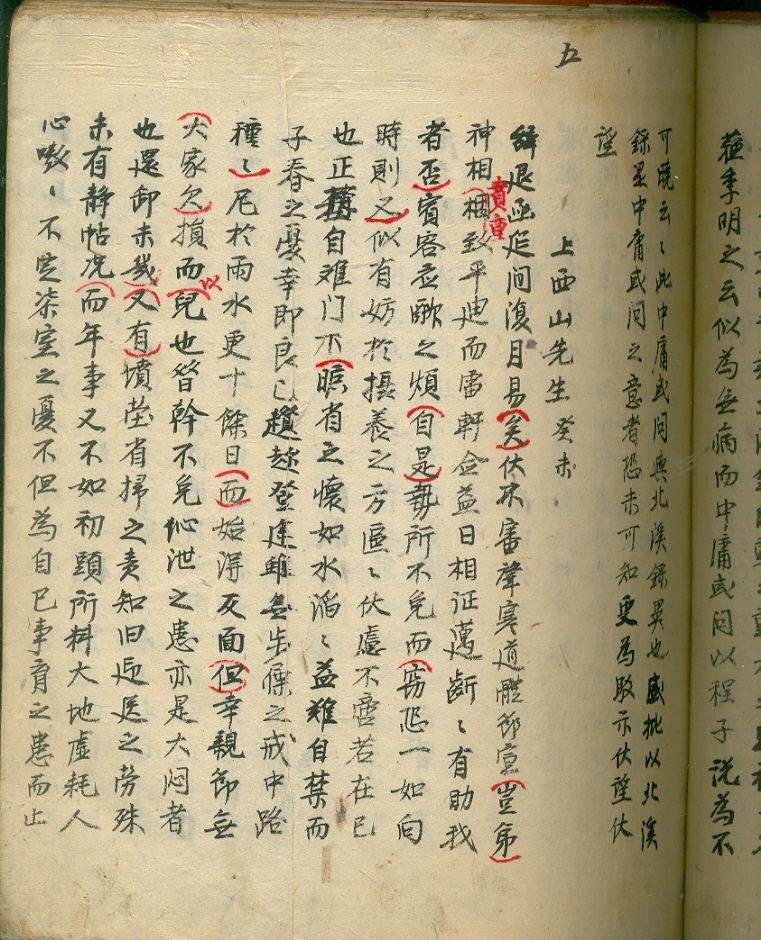 蘓季明之云似為無病而中庸或问以程子说為不
可曉云〻此中庸或问與北溪録異也盛批以北溪
録是中庸或问之意者恐未可知更為敗示伏望伏
望
上西山先生 癸未
辞退函筵间復月易矣伏不審肇寒道體節宣豈弟
神相 相致平迪而雷軒佥益日相征邁斷〻有助我
貴重
者否賓客應酬之煩自是勢所不免而窃恐一如向
時則又似有妨於摄養之方區〻伏慮不啻若在己
也正 自难门下 省之懷如水滔〻益難自禁而
子春之憂幸即良已 登途雖無生 之戒中路
種〻尼於雨水更十馀日而始得反面但幸親節無
大家欠損而兒也昝幹不免 泄之患亦是大闷者
以
也還卸未幾又有墳塋省掃之责知旧迎送之劳殊
未有静帖况而年事又不如初頭所料大地虚耗人
心嗷〻不定柒室之憂不但為自己事育之患而止
五